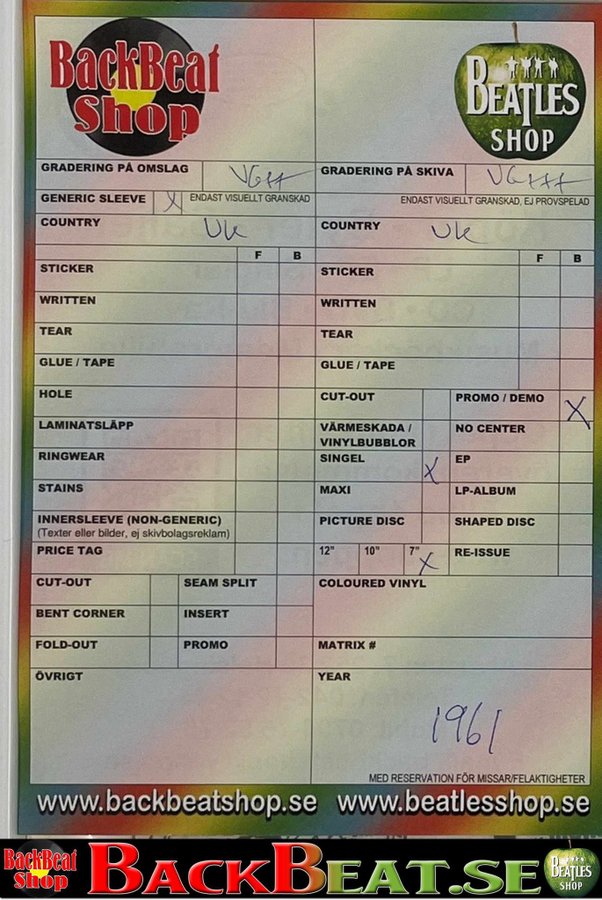 BackBeat
Shop
BEATLES
SHOP
GRADERING PÅ OMSLAG VG++
GRADERING PÅ SKIVA VG+++
GENERIC SLEEVE X ENDAST VISUELLT GRANSKAD
ENDAST VISUELLT GRANSKAD, EJ PROVSPELAD
COUNTRY UK
COUNTRY UK
F B
F B
STICKER
STICKER
WRITTEN
WRITTEN
TEAR
TEAR
GLUE / TAPE
GLUE / TAPE
HOLE
CUT-OUT
PROMO / DEMO X
LAMINATSLÄPP
VÄRMESKADA /
VINYLBUBBLOR
NO CENTER
RINGWEAR
SINGEL X
EP
STAINS
MAXI
LP-ALBUM
INNERSLEEVE (NON-GENERIC)
(Texter eller bilder, ej skivbolagsreklam)
PICTURE DISC
SHAPED DISC
PRICE TAG
12" 10" 7" X
RE-ISSUE
CUT-OUT
SEAM SPLIT
COLOURED VINYL
BENT CORNER
INSERT
FOLD-OUT
PROMO
MATRIX #
ÖVRIGT
YEAR
1961
MED RESERVATION FÖR MISSAR/FELAKTIGHETER
www.backbeatshop.se www.beatlesshop.se
BackBeat
Shop
BACKBEAT.SE
BEATLES
SHOP